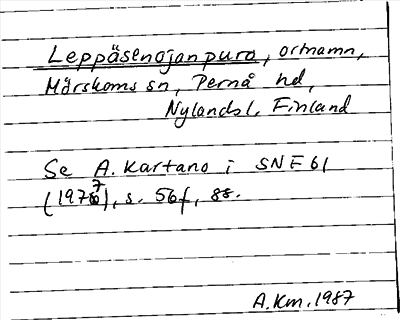 Leppäsenojanpuro, ortnamn,
Mörskoms sn, Pernå hd,
Nylandsl. Finland
Se A. Kartano i SNE 61
(1977), s. 56f, 88.
A.Km. 1987